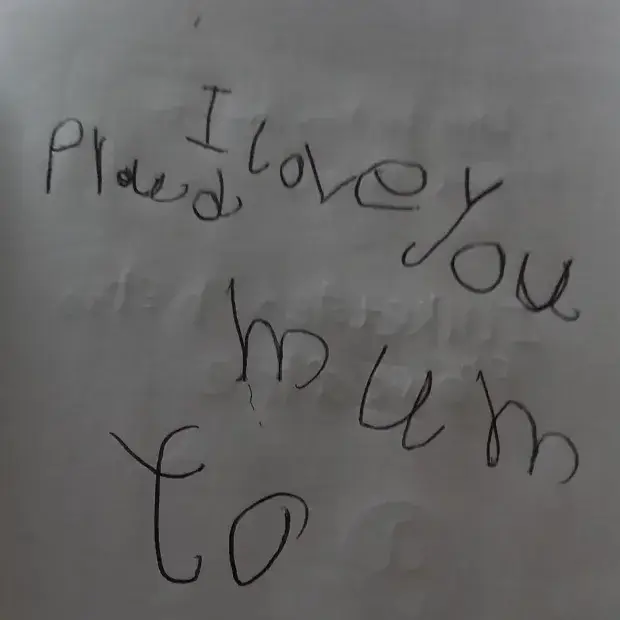 I love you
mum
to